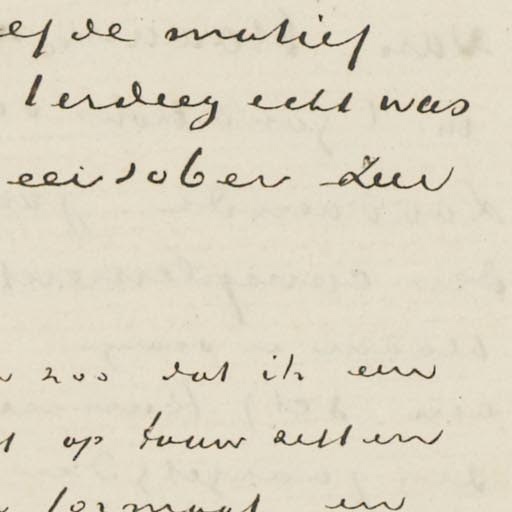 efde motief
terdeeg echt was
een sober zeer
zoo dat ik een
op touw zetten
formaat en